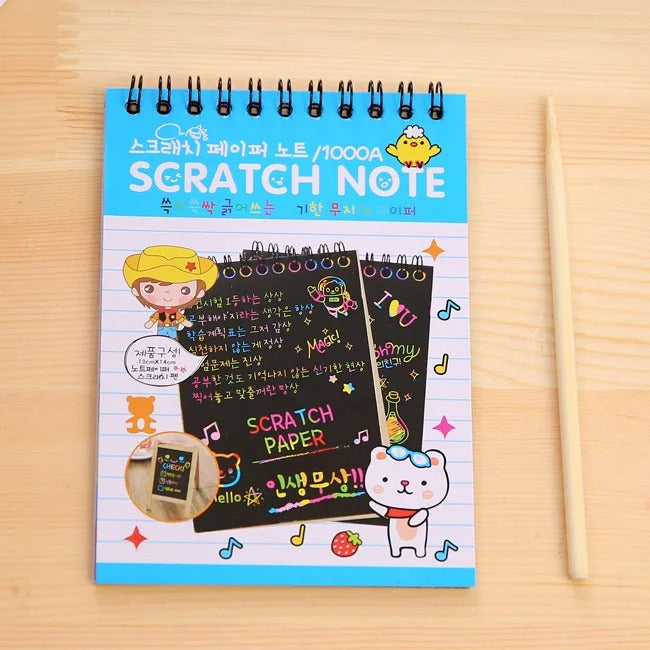 스크래치 페이퍼 노트 /1000A
SCRATCH NOTE
긁어쓰는
1등하는 상상
라는 생각은 항상
학습계획표는 그저 감상
실천하지 않는게 정상
문제는 진상
공부한 것도 기억나지 않는 신기한 현상
찍어놓고 맞출꺼란 망상
Magic!
I U
Oh my
SCRATCH
PAPER
인생무상!!
Hello
제품구성!
10cm X 14cm
노트페이퍼
스크래치 펜
CHECK!